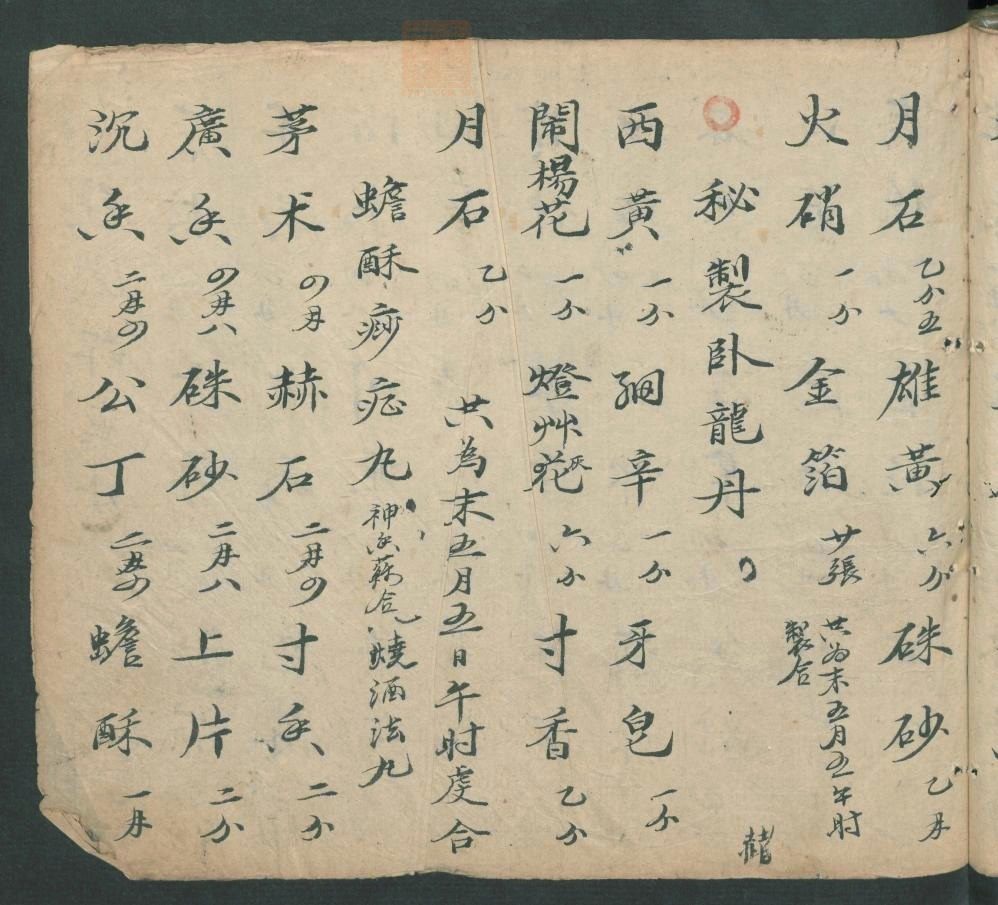 月石 乙分五 雄黃 六分 硃砂 乙両
火硝 一分 金箔 廿張 共為末五月五午时
製合
秘製卧龍丹
西黃 一分 細辛 一分 牙皂 一分
鬧楊花 一分 燈艸花 灰 六分 寸香 乙分
月石 乙分 共為末五月五日午时虔合
蟾酥痧症丸 神 蘇合 燒酒法丸
茅术 四両 赫石 二両四 寸香 二分
廣香 四両八 硃砂 二両八 上片 二分
沉香 二両四 公丁 蟾酥 一両